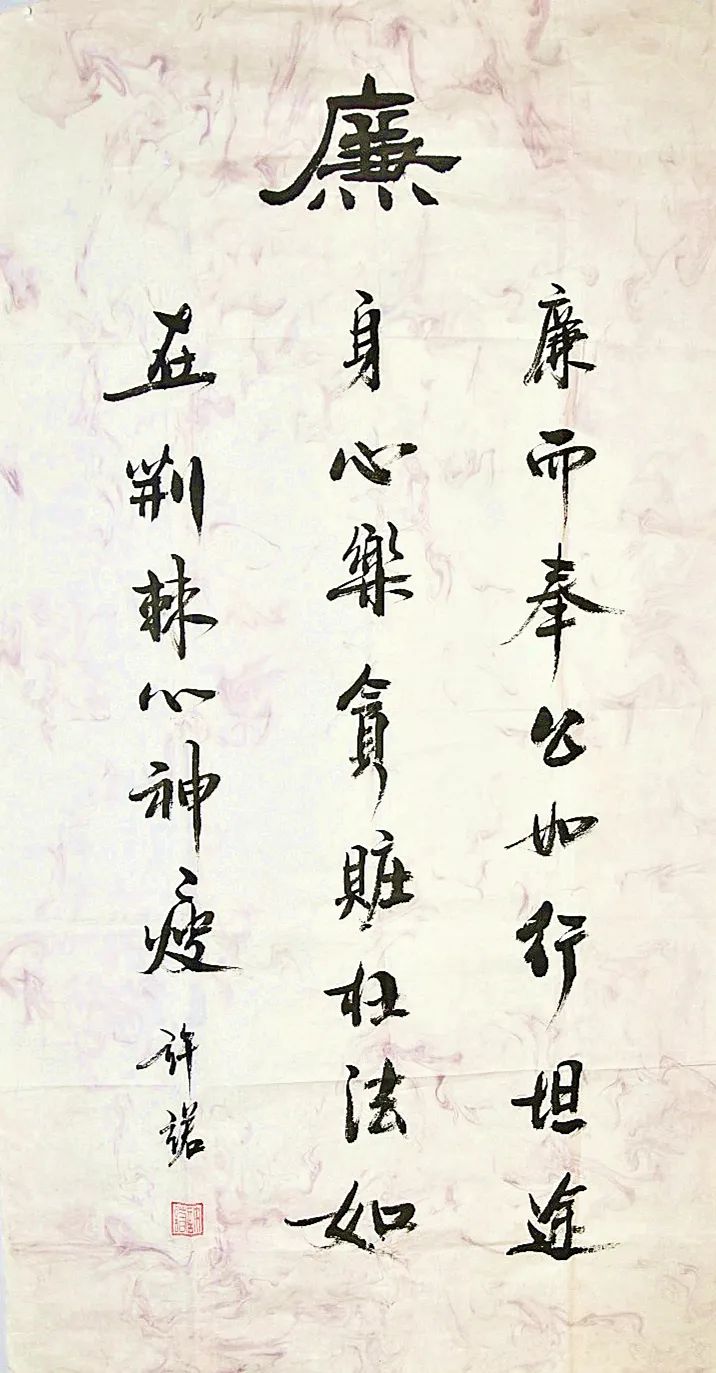 廉
廉而奉公如行坦途
身心樂貪賍枉法如
在荆棘心神瘦
許諾